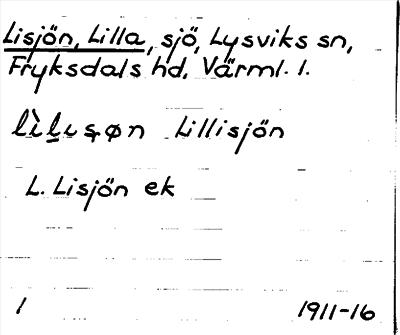 Lisjön, Lilla, sjö, Lysviks sn,
Fryksdals hd, Värml. l.
Lillisjön
L. Lisjön ek
1 1911-16